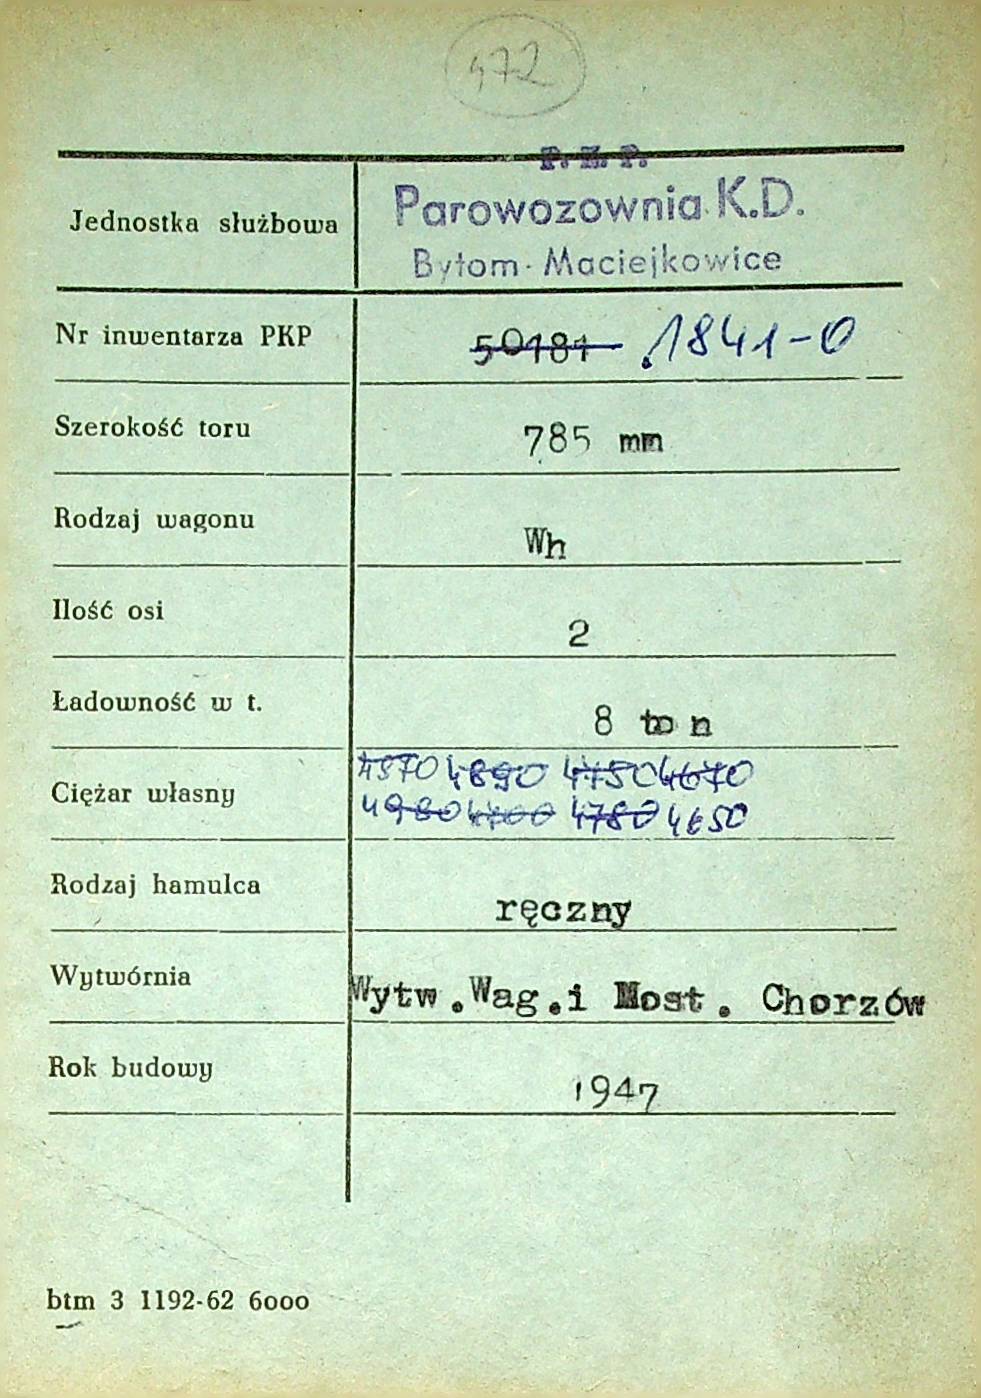 472
P. K. P.
Jednostka służbowa Parowozownia K.D.
Bytom - Maciejkowice
Nr inwentarza PKP 50181 1841-0
Szerokość toru 785 mm
Rodzaj wagonu Wh
Ilość osi 2
Ładowność w t. 8 ton
4970 4890 4750 4670
Ciężar własny
4980 4700 4780 4650
Rodzaj hamulca ręczny
Wytwórnia Wytw.Wag.i Most. Chorzów
Rok budowy 1947
btm 3 1192-62 6000